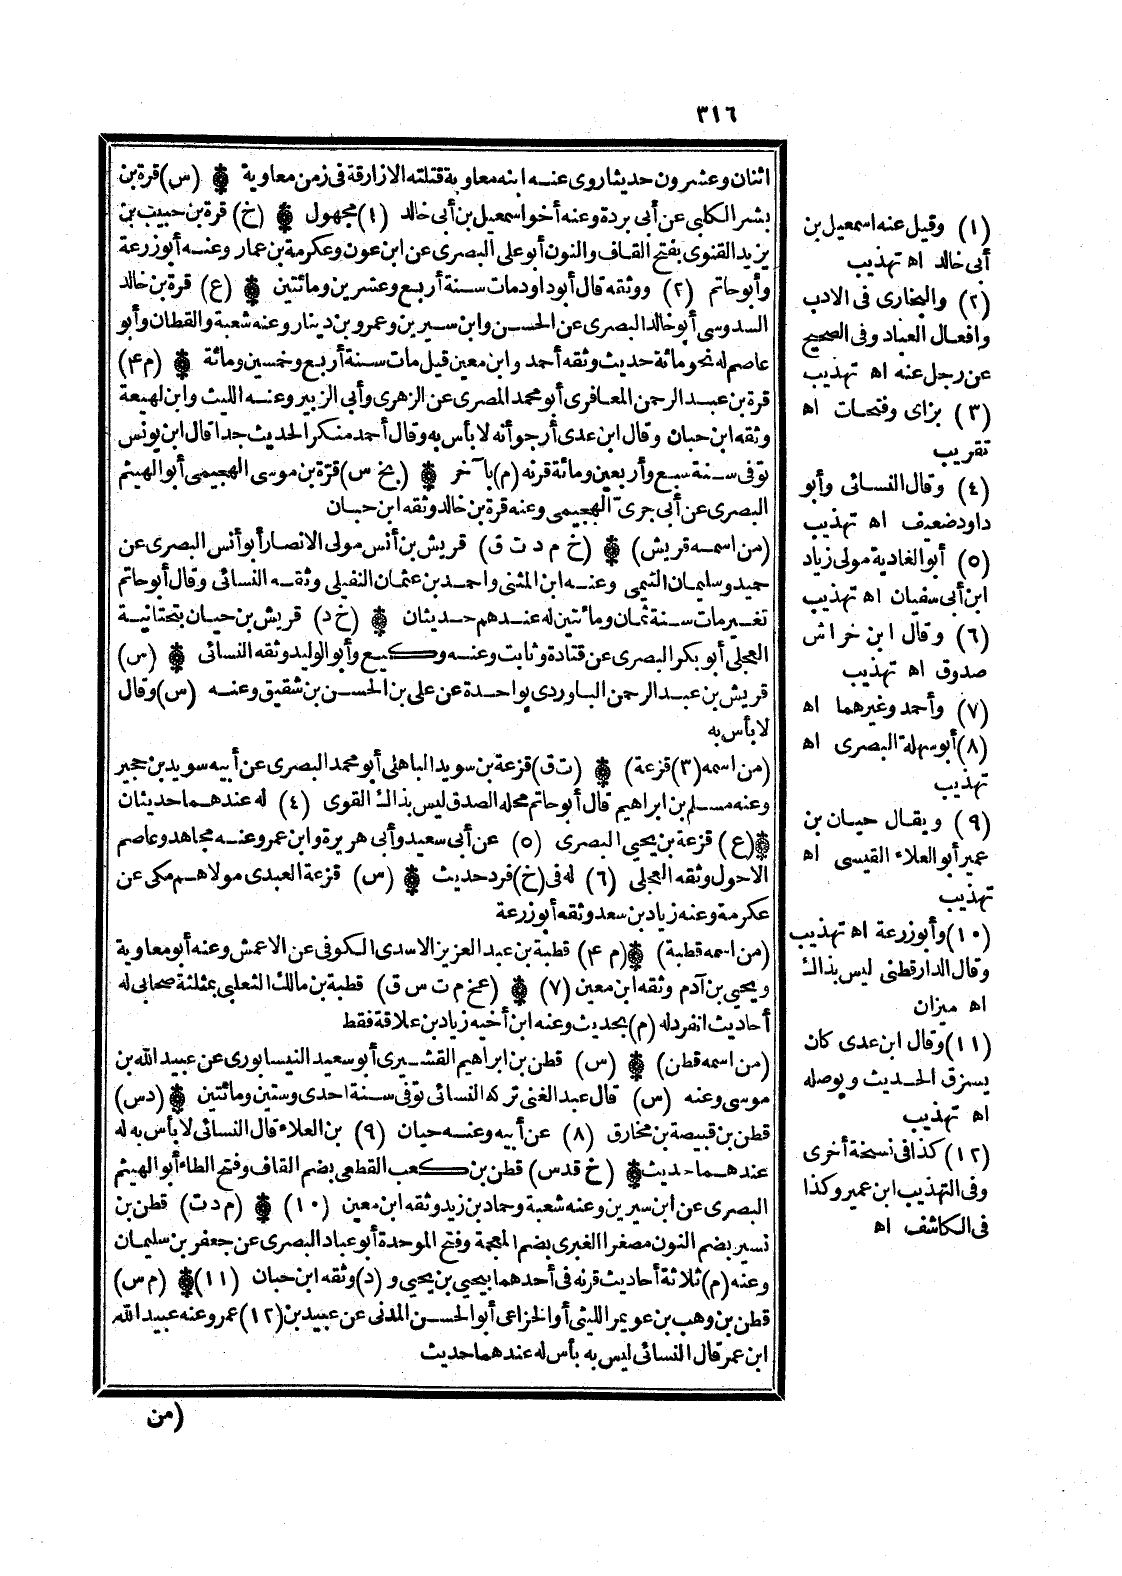 ٣١٦
اثنان وعشرون حديثا روى عنه ابنه معاوية قتلته الازارقة فى زمن معاوية ۞ (س) قرة بن
بشر الكلبى عن أبى بردة وعنه أخو اسمعيل بن أبى خالد (١) مجهول ۞ (خ) قرة بن حبيب بن
يزيد القنوى بفتح القاف والنون أبو على البصرى عن ابن عون وعكرمة بن عمار وعنه أبو زرعة
وأبو حاتم (٢) ووثقه قال أبو داود مات سنة أربع وعشرين ومائتين ۞ (ع) قرة بن خالد
السدوسى أبو خالد البصرى عن الحسن وابن سيرين وعمرو بن دينار وعنه شعبة والقطان وأبو
عاصم له نحو مائة حديث وثقه أحمد وابن معين قيل مات سنة أربع وخمسين ومائة ۞ (م ٤)
قرة بن عبد الرحمن المعافرى أبو محمد المصرى عن الزهرى وأبى الزبير وعنه الليث وابن لهيعة
وثقه ابن حبان وقال ابن عدى أرجو أنه لا بأس به وقال أحمد منكر الحديث جدا قال ابن يونس
توفى سنة سبع وأربعين ومائة قرنه (م) بآخر ۞ (بخ س) قرّة بن موسى الهجيمى أبو الهيثم
البصرى عن أبى جرىّ الهجيمى وعنه قرة بن خالد وثقه ابن حبان
(من اسمه قريش) ۞ (خ م د ت ق) قريش بن أنس مولى الانصار أبو أنس البصرى عن
حميد وسليمان التيمى وعنه ابن المثنى واحمد بن عثمان النفيلى وثقه النسائى وقال أبو حاتم
تغير مات سنة ثمان ومائتين له عندهم حديثان ۞ (خ د) قريش بن حيان بتحتانية
العجلى أبو بكر البصرى عن قتادة وثابت وعنه وكيع وأبو الوليد وثقه النسائى ۞ (س)
قريش بن عبد الرحمن الباوردى بواحدة عن على بن الحسن بن شقيق وعنه (س) وقال
لا بأس به
(من اسمه (٣) قزعة) ۞ (ت ق) قزعة بن سويد الباهلى أبو محمد البصرى عن أبيه سويد بن حجير
وعنه مسلم بن ابراهيم قال أبو حاتم محله الصدق ليس بذاك القوى (٤) له عندهما حديثان
۞ (ع) قزعة بن يحيى البصرى (٥) عن أبى سعيد وأبى هريرة وابن عمر وعنه مجاهد وعاصم
الاحول وثقه العجلى (٦) له فى (خ) فرد حديث ۞ (س) قزعة العبدى مولاهم مكى عن
عكرمة وعنه زياد بن سعد وثقه أبو زرعة
(من اسمه قطبة) ۞ (م ٤) قطبة بن عبد العزيز الاسدى الكوفى عن الاعمش وعنه أبو معاوية
ويحيى بن آدم وثقه ابن معين (٧) ۞ (عخ م ت س ق) قطبة بن مالك الثعلبى بمثلثة صحابى له
أحاديث انفرد له (م) بحديث وعنه ابن أخيه زياد بن علاقة فقط
(من اسمه قطن) ۞ (س) قطن بن ابراهيم القشيرى أبو سعيد النيسابورى عن عبيد الله بن
موسى وعنه (س) قال عبد الغنى تركه النسائى توفى سنة احدى وستين ومائتين ۞ (د س)
قطن بن قبيصة بن مخارق (٨) عن أبيه وعنه حيان (٩) بن العلاء قال النسائى لا بأس به له
عندهما حديث ۞ (خ قد س) قطن بن كعب القطعى بضم القاف وفتح الطاء أبو الهيثم
البصرى عن ابن سيرين وعنه شعبة وحماد بن زيد وثقه ابن معين (١٠) ۞ (م د ت) قطن بن
نسير بضم النون مصغرا الغبرى بضم المعجمة وفتح الموحدة أبو عباد البصرى عن جعفر بن سليمان
وعنه (م) ثلاثة أحاديث قرنه فى أحدهما بيحيى بن يحيى و (د) وثقه ابن حبان (١١) ۞ (م س)
قطن بن وهب بن عويمر الليثى أو الخزاعى أبو الحسن المدنى عن عبيد بن (١٢) عمر وعنه عبيد الله
ابن عمر قال النسائى ليس به بأس له عندهما حديث
(من
(١) وقيل عنه اسمعيل بن
أبى خالد اه تهذيب
(٢) والبخارى فى الادب
وافعال العباد وفى الصحيح
عن رجل عنه اه تهذيب
(٣) بزاى وفتحات اه
تقريب
(٤) وقال النسائى وأبو
داود ضعيف اه تهذيب
(٥) أبو الغادية مولى زياد
ابن أبى سفيان اه تهذيب
(٦) وقال ابن خراش
صدوق اه تهذيب
(٧) وأحمد وغيرهما اه
(٨) أبو سهلة البصرى اه
تهذيب
(٩) ويقال حيان بن
عمير أبو العلاء القيسى اه
تهذيب
(١٠) وأبو زرعة اه تهذيب
وقال الدارقطنى ليس بذاك
اه ميزان
(١١) وقال ابن عدى كان
يسرق الحديث ويوصله
اه تهذيب
(١٢) كذا فى نسخة أخرى
وفى التهذيب ابن عمير وكذا
فى الكاشف اه